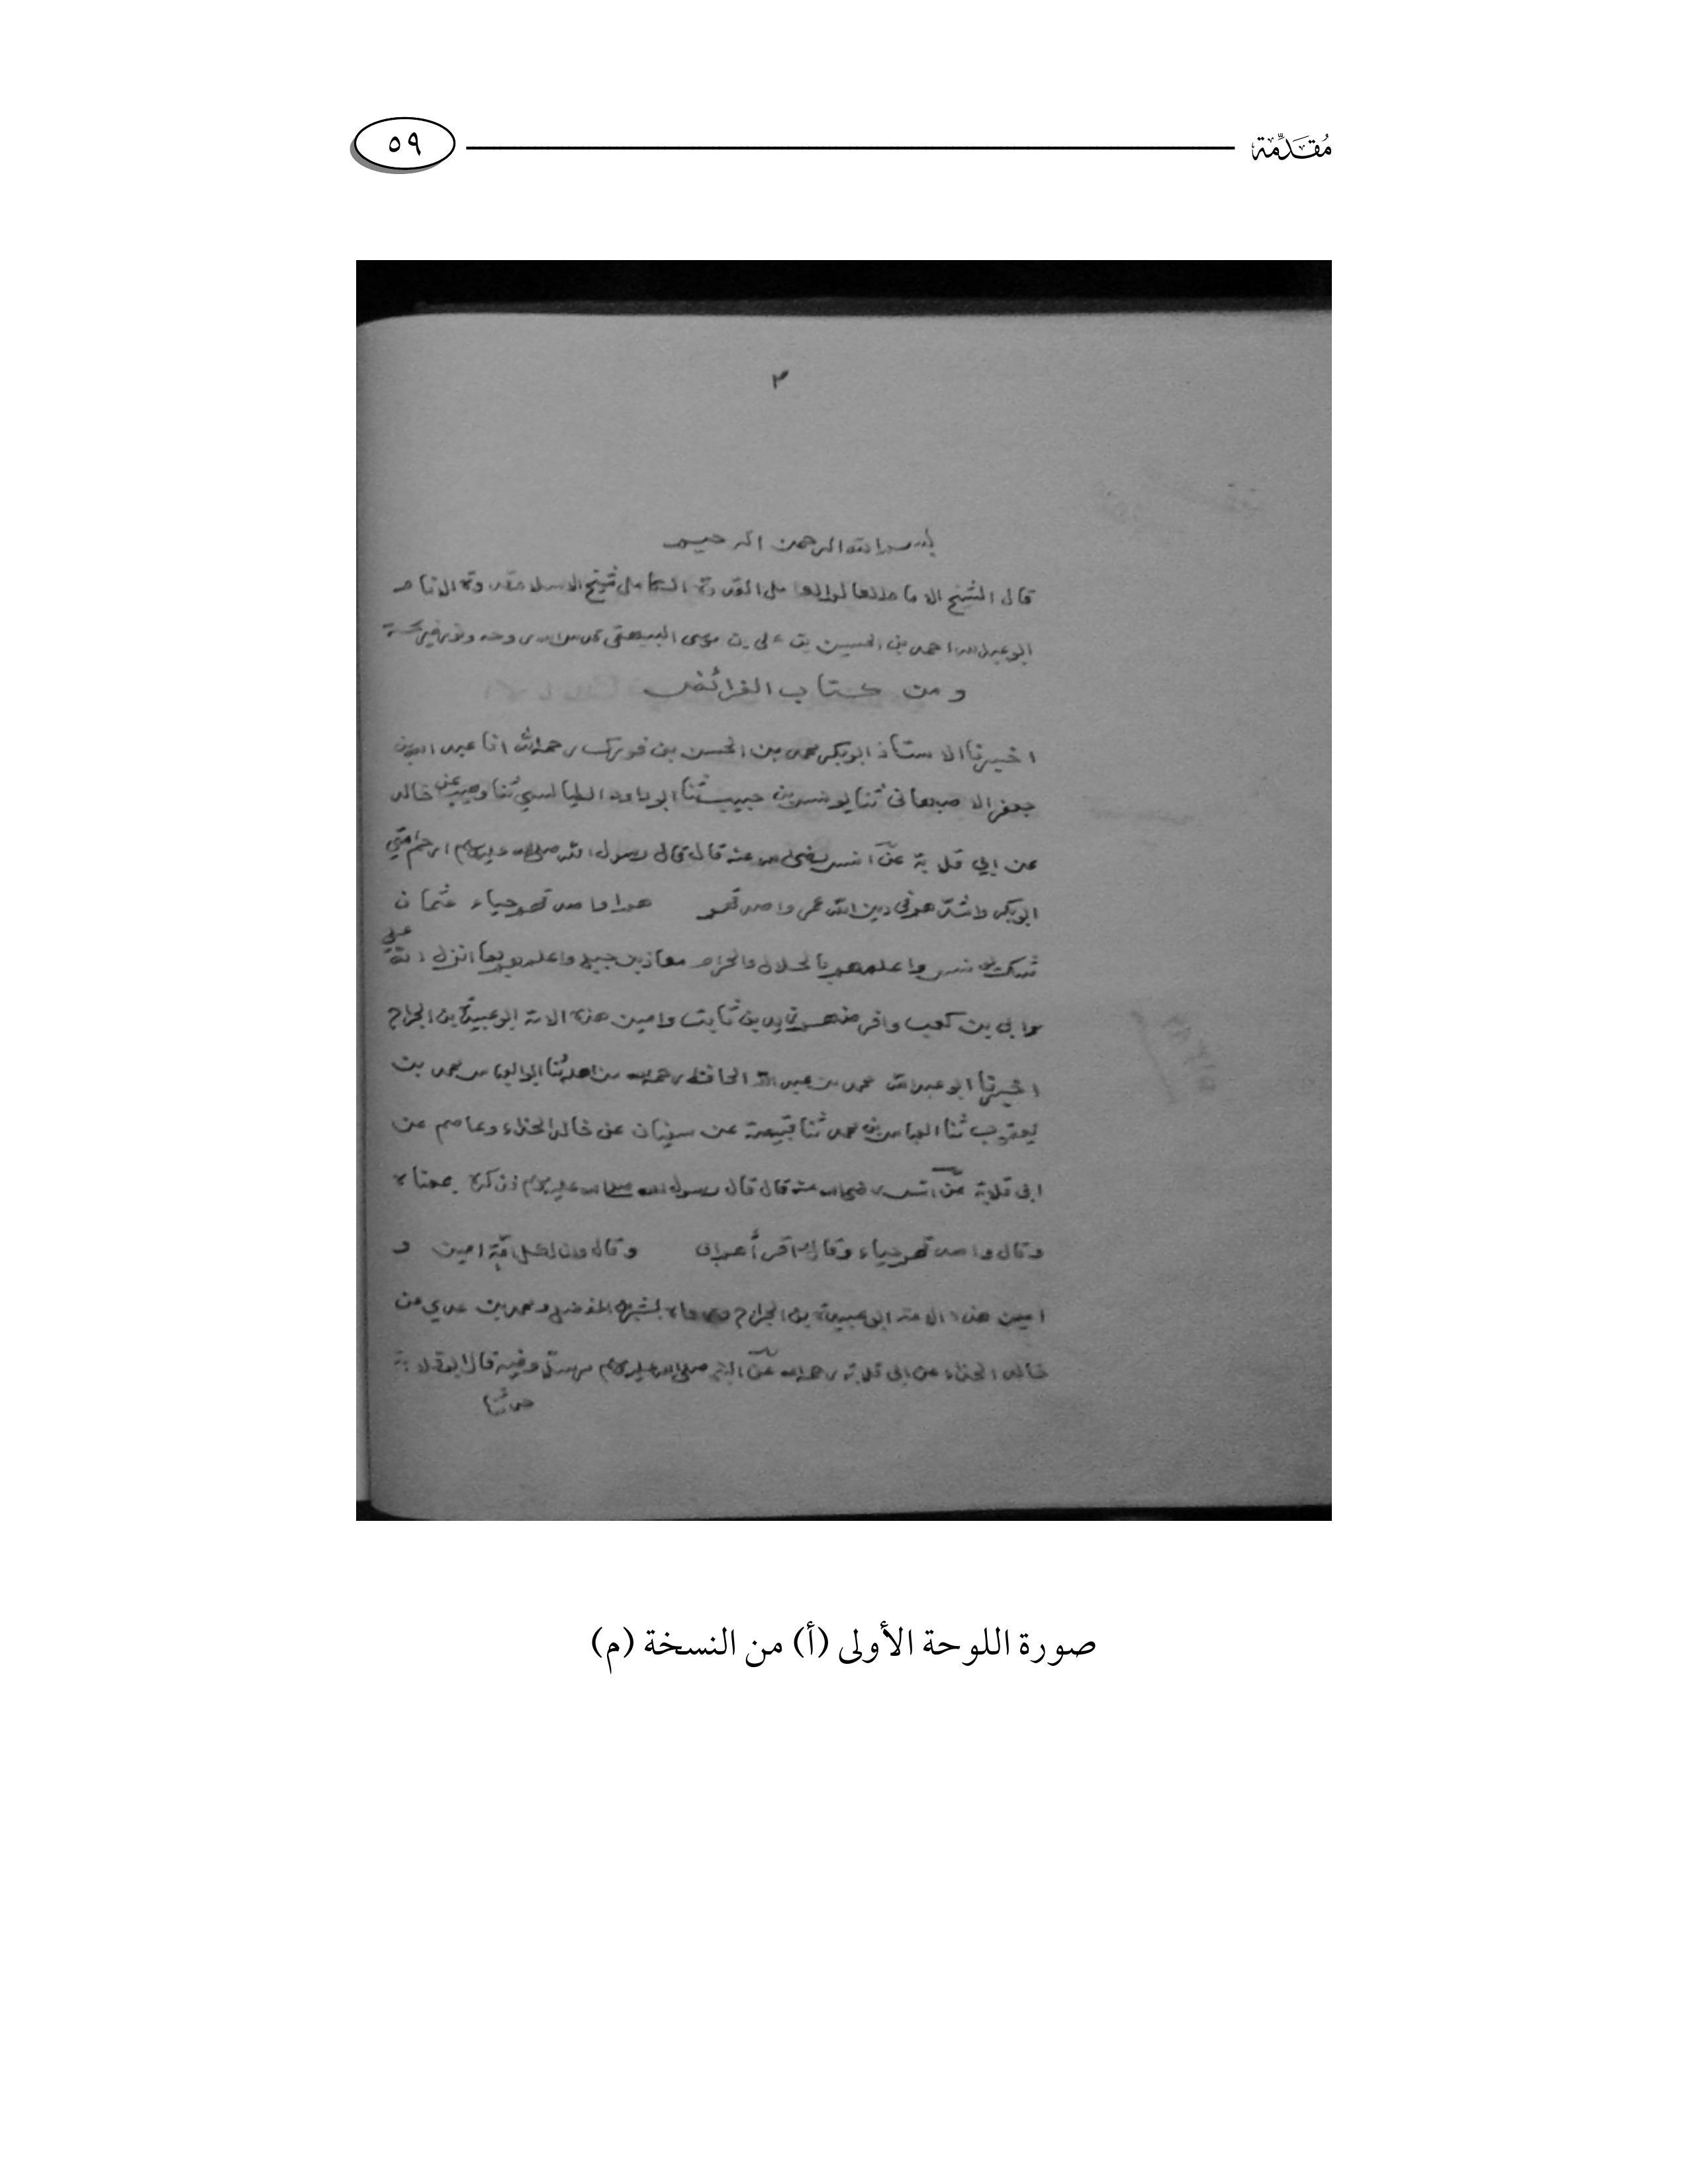 مُقَدِّمَة
٥٩
٣
بسم الله الرحمن الرحيم
قال الشيخ الامام العالم العامل القدوة الكامل شيخ الاسلام قدوة الانام
ابو عبدالله احمد بن الحسين بن على بن موسى البيهقى روحه ونور
ومن كتاب الفرائض
اخبرنا الاستاذ ابوبكر محمد بن الحسن بن فورك رحمه الله انا عبد الله بن
جعفر الاصبهانى ثنا يونس بن حبيب ثنا ابو داود الطيالسي ثنا وهيب عن خالد
عن ابي قلابة عن انس رضى الله عنه قال قال رسول الله صلى الله عليه وسلم ارحم امتي
ابوبكر واشدهم فى دين الله عمر واصدقهم حياء عثمان
واعلمهم بالحلال والحرام معاذ بن جبل واعلمهم بما انزل
ابي بن كعب وافرضهم زيد بن ثابت وامين هذه الامة ابو عبيدة بن الجراح
اخبرنا ابو عبد الله محمد بن عبد الله الحافظ رحمه الله ثنا ابو العباس محمد بن
يعقوب ثنا العباس بن محمد ثنا قبيصة عن سفيان عن خالد الحذاء وعاصم عن
ابى قلابة عن انس رضى الله عنه قال قال رسول الله صلى الله عليه وسلم فذكره بمعناه
وقال واصدقهم حياء وقال اقرأهم ابى وقال وان لكل امة امين و
امين هذه الامة ابو عبيدة بن الجراح ورواه بشر بن المفضل ومحمد بن عدي عن
خالد الحذاء عن ابى قلابة رحمه الله عن النبى صلى الله عليه وسلم مرسلا وفيه قال ابو قلابة
حدثنا
صورة اللوحة الأولى (أ) من النسخة (م)